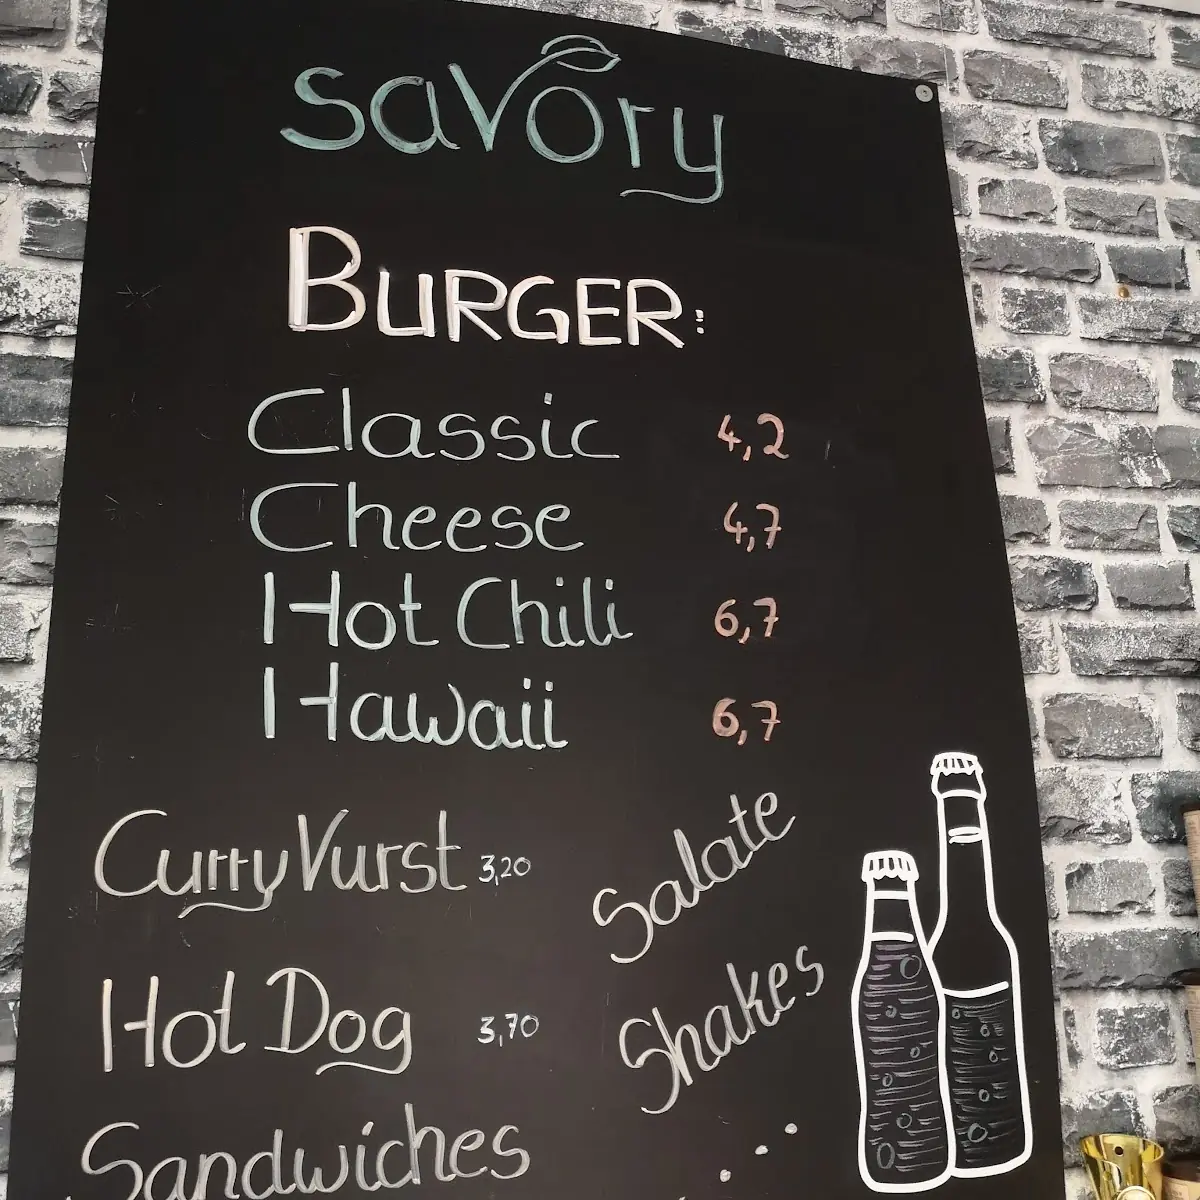 savory
BURGER:
Classic 4,2
Cheese 4,7
Hot Chili 6,7
Hawaii 6,7
CurryVurst 3,20
Salate
Hot Dog 3,70
Shakes
Sandwiches
...